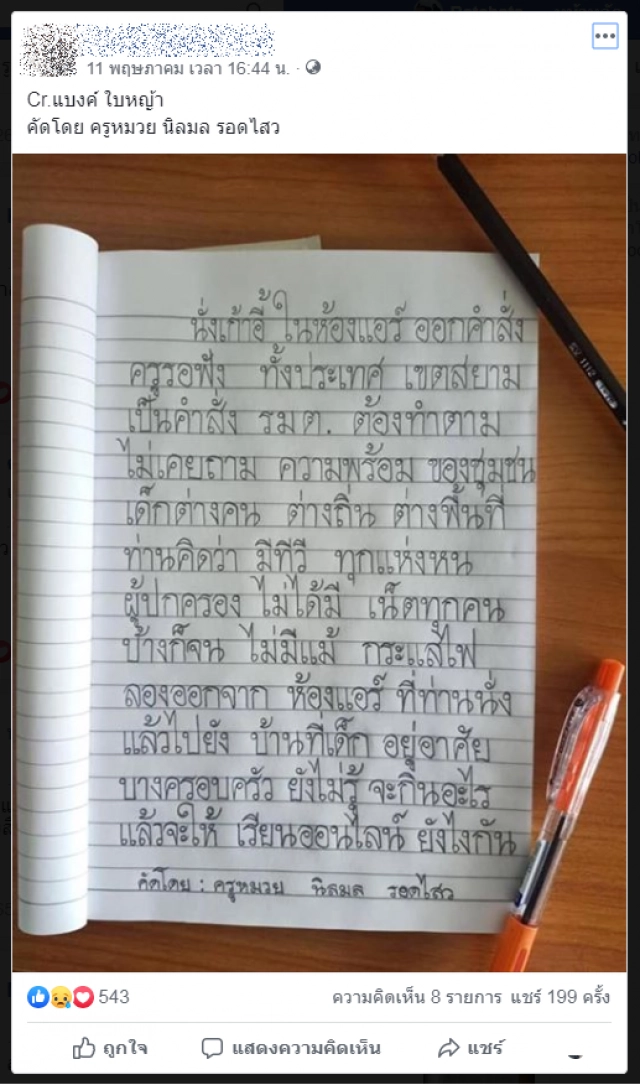 11 พฤษภาคม เวลา 16:44 น. ·
Cr.แบงค์ ใบหญ้า
คัดโดย ครูหมวย นิลมล รอดไสว
นั่งเก้าอี้ ในห้องแอร์ ออกคำสั่ง
ครูรอฟัง ทั้งประเทศ เขตสยาม
เป็นคำสั่ง รมต. ต้องทำตาม
ไม่เคยถาม ความพร้อม ของชุมชน
เด็กต่างคน ต่างถิ่น ต่างพื้นที่
ท่านคิดว่า มีทีวี ทุกแห่งหน
ผู้ปกครอง ไม่ได้มี เน็ตทุกคน
บ้างก็จน ไม่มีแม้ กระแสไฟ
ลองออกจาก ห้องแอร์ ที่ท่านนั่ง
แล้วไปยัง บ้านที่เด็ก อยู่อาศัย
บางครอบครัว ยังไม่รู้ จะกินอะไร
แล้วจะให้ เรียนออนไลน์ ยังไงกัน
คัดโดย : ครูหมวย นิลมล รอดไสว
543
ความคิดเห็น 8 รายการ แชร์ 199 ครั้ง
ถูกใจ แสดงความคิดเห็น แชร์